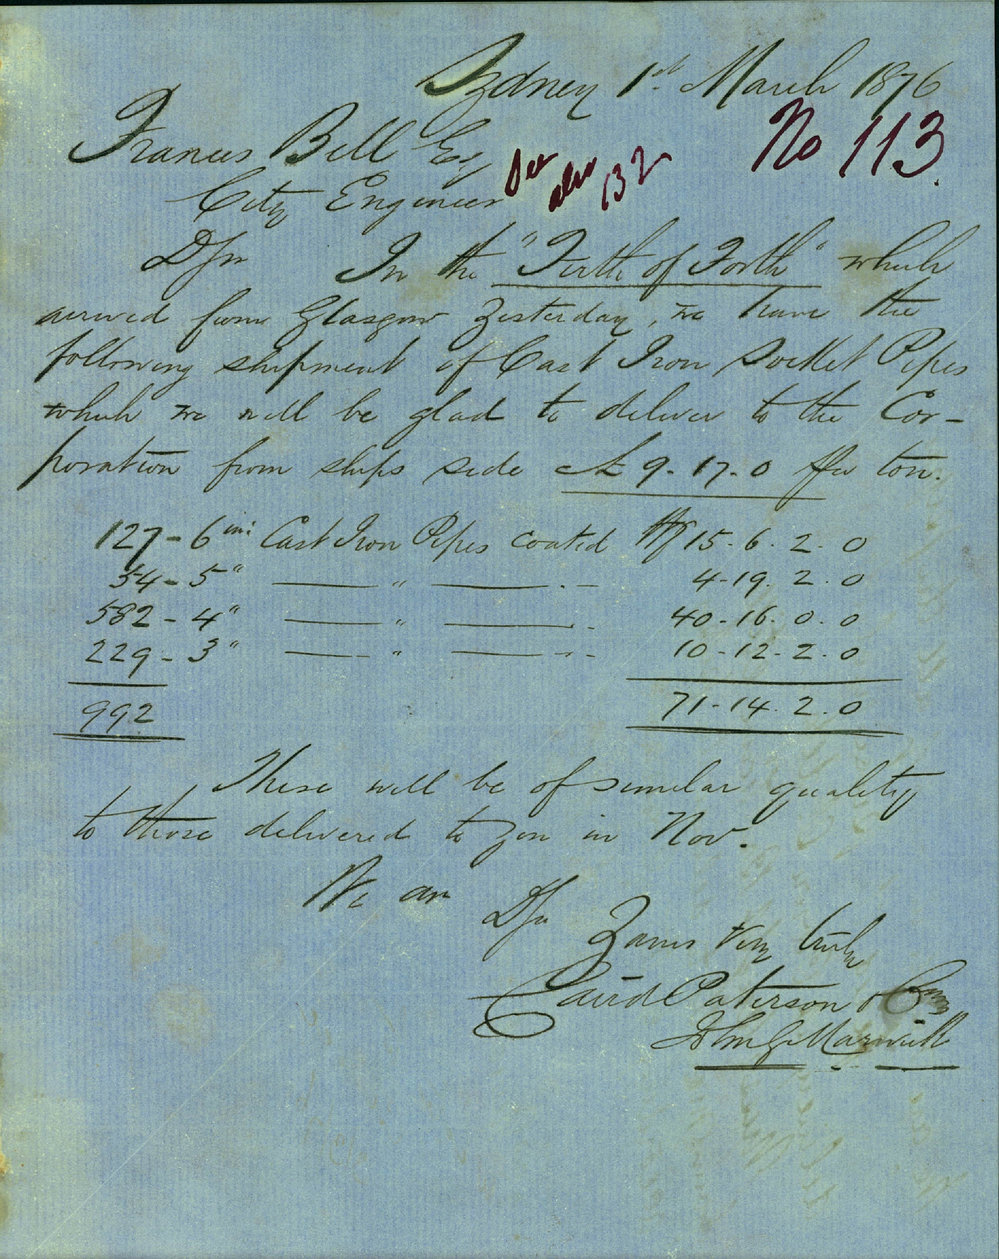 Sydney 1st March 1876
No 113.
Francis Bell Esq
See also 132
City Engineer
D/Sir In the "Firth of Forth" which
arrived from Glasgow Yesterday, we have the
following shipment of Cast Iron Socket Pipes
which we will be glad to deliver to the Cor-
poration from ships side At 9-17-0 per ton.
127-6 in: Cast Iron Pipes coated Wg 15-6.2.0
54-5" — " — 4-19.2.0
582-4" — " — 40-16.0.0
229-3" — " — 10-12.2.0
992 71-14.2.0
These will be of similar quality
to those delivered to you in Nov.
We are D/Sir
Yours very truly
Caird Paterson &
Jhn G. Marwick